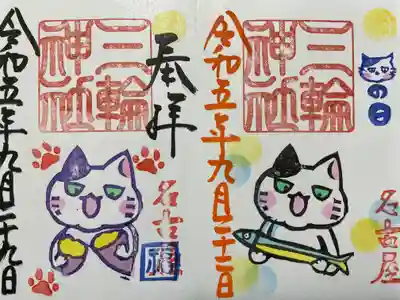 の日
三輪
神社
令和五年九月二十二日
名古屋
奉拝
三輪
神社
令和五年九月二十九日
名古屋